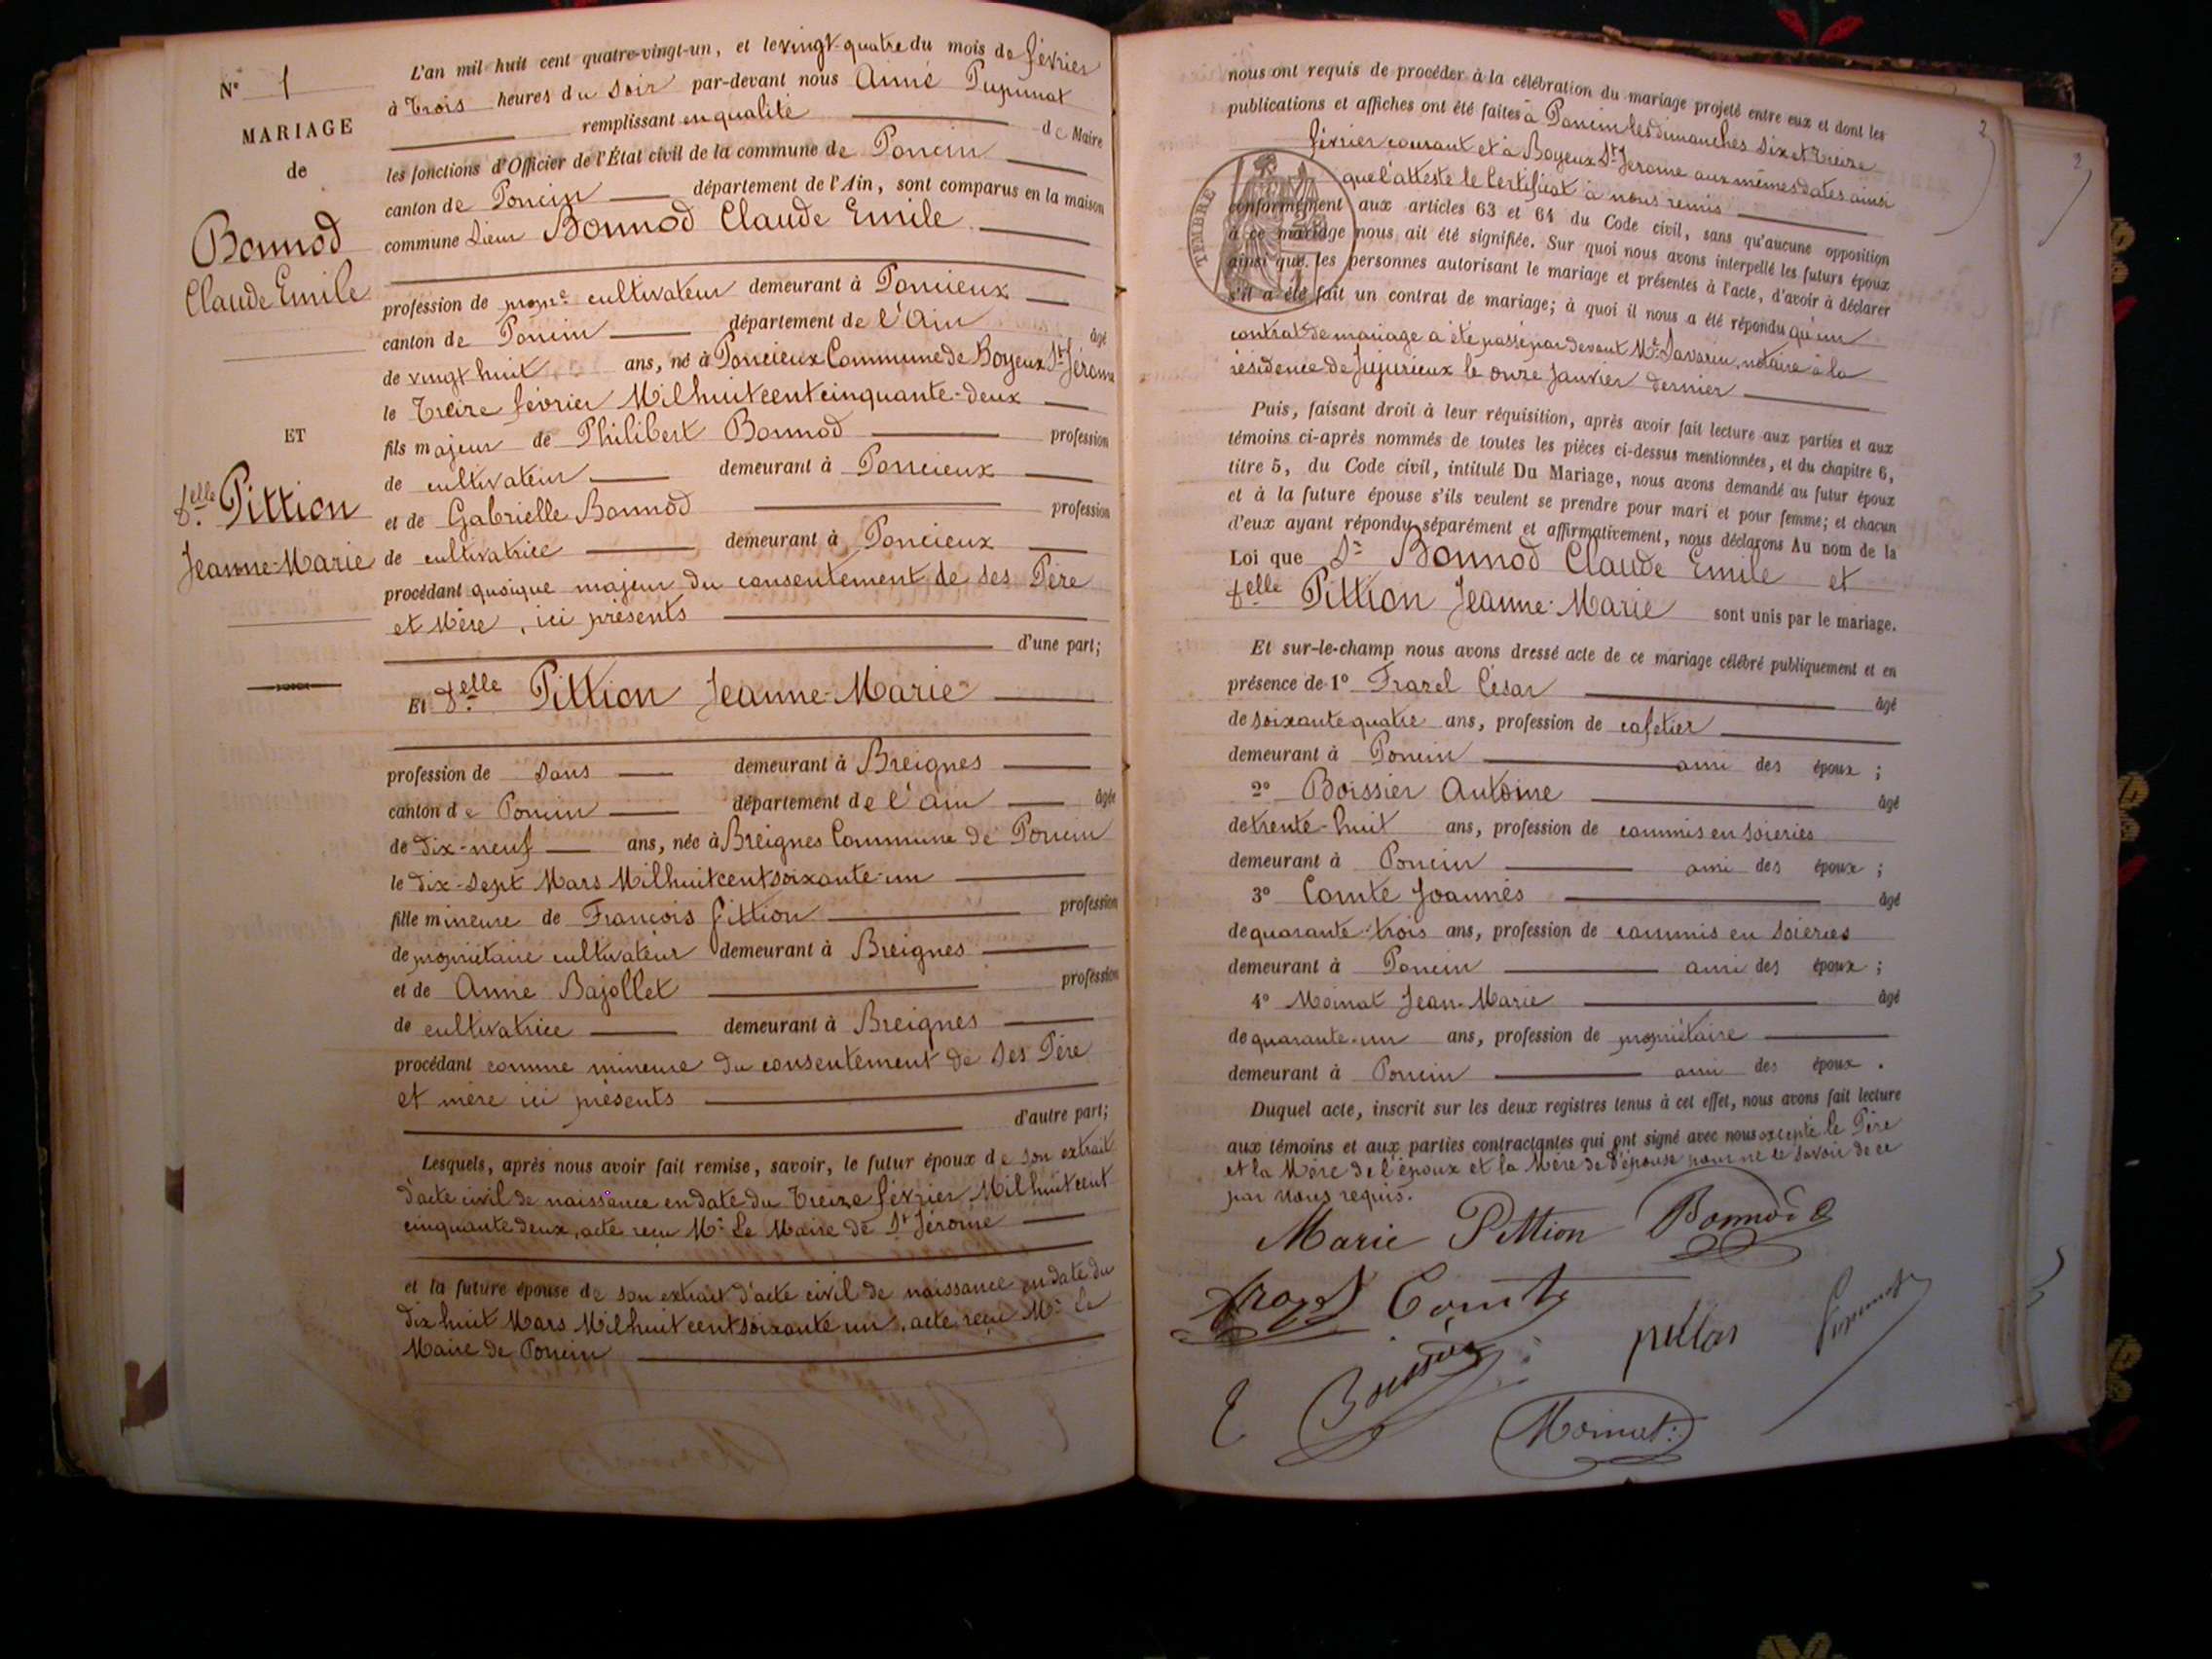 N° 1
MARIAGE
de
Bonnod
Claude Emile
ET
Delle Pittion
Jeanne-Marie
L'an mil huit cent quatre-vingt-un, et le vingt-quatre du mois de février
à trois heures du soir par-devant nous Aimé
remplissant en qualité de Maire
les fonctions d'Officier de l'État civil de la commune de Poncin
canton de Poncin département de l'Ain, sont comparus en la maison
commune Sieur Bonnod Claude Emile
profession de propre cultivateur demeurant à Poncieux
canton de Poncin département de l'Ain âgé
de vingt huit ans, né à Poncieux Commune de Boyeux St Jérome
le treize février Mil huit cent cinquante-deux
fils majeur de Philibert Bonnod profession
de cultivateur demeurant à Poncieux
et de Gabrielle Bonnod profession
de cultivatrice demeurant à Poncieux
procédant quoique majeur du consentement de ses Père
et Mère, ici présents
d'une part;
Et Delle Pittion Jeanne-Marie
profession de sans demeurant à Breignes
canton de Poncin département de l'Ain âgée
de dix-neuf ans, née à Breignes Commune de Poncin
le dix-sept Mars Mil huit cent soixante-un
fille mineure de François Pittion profession
de propriétaire cultivateur demeurant à Breignes
et de Anne Bajollet profession
de cultivatrice demeurant à Breignes
procédant comme mineure du consentement de ses Père
et mère ici présents
d'autre part;
Lesquels, après nous avoir fait remise, savoir, le futur époux de son extrait
d'acte civil de naissance en date du treize février Mil huit cent
cinquante deux, acte reçu Mr Le Maire de St Jérome
et la future épouse de son extrait d'acte civil de naissance en date du
dix huit Mars Mil huit cent soixante un, acte reçu Mr Le
Maire de Poncin
2
2
TIMBRE
nous ont requis de procéder à la célébration du mariage projeté entre eux et dont les
publications et affiches ont été faites à Poncin les dimanches six et treize
février courant et à Boyeux St Jerome aux mêmes dates ainsi
que l'atteste le Certificat à nous remis
conformément aux articles 63 et 64 du Code civil, sans qu'aucune opposition
à ce mariage nous ait été signifiée. Sur quoi nous avons interpellé les futurs époux
ainsi que les personnes autorisant le mariage et présentes à l'acte, d'avoir à déclarer
s'il a été fait un contrat de mariage; à quoi il nous a été répondu qu'un
contrat de mariage a été passé par devant Me Savarin, notaire à la
résidence de Jujurieux le onze Janvier dernier
Puis, faisant droit à leur réquisition, après avoir fait lecture aux parties et aux
témoins ci-après nommés de toutes les pièces ci-dessus mentionnées, et du chapitre 6,
titre 5, du Code civil, intitulé Du Mariage, nous avons demandé au futur époux
et à la future épouse s'ils veulent se prendre pour mari et pour femme; et chacun
d'eux ayant répondu séparément et affirmativement, nous déclarons Au nom de la
Loi que Sr Bonnod Claude Emile et
Delle Pittion Jeanne-Marie sont unis par le mariage.
Et sur-le-champ nous avons dressé acte de ce mariage célébré publiquement et en
présence de 1° Frazel César âgé
de soixante quatre ans, profession de cafetier
demeurant à Poncin ami des époux ;
2° Boissier Antoine âgé
de trente-huit ans, profession de commis en soieries
demeurant à Poncin ami des époux ;
3° Comte Joannès âgé
de quarante-trois ans, profession de commis en soieries
demeurant à Poncin ami des époux ;
4° Moinat Jean-Marie âgé
de quarante-un ans, profession de propriétaire
demeurant à Poncin ami des époux .
Duquel acte, inscrit sur les deux registres tenus à cet effet, nous avons fait lecture
aux témoins et aux parties contractantes qui ont signé avec nous excepté le Père
et la Mère de l'époux et la Mère de l'épouse pour ne le savoir de ce
par nous requis.
Marie Pittion Bonnod E
Frazel Comte
Boissier pittion
Moinat